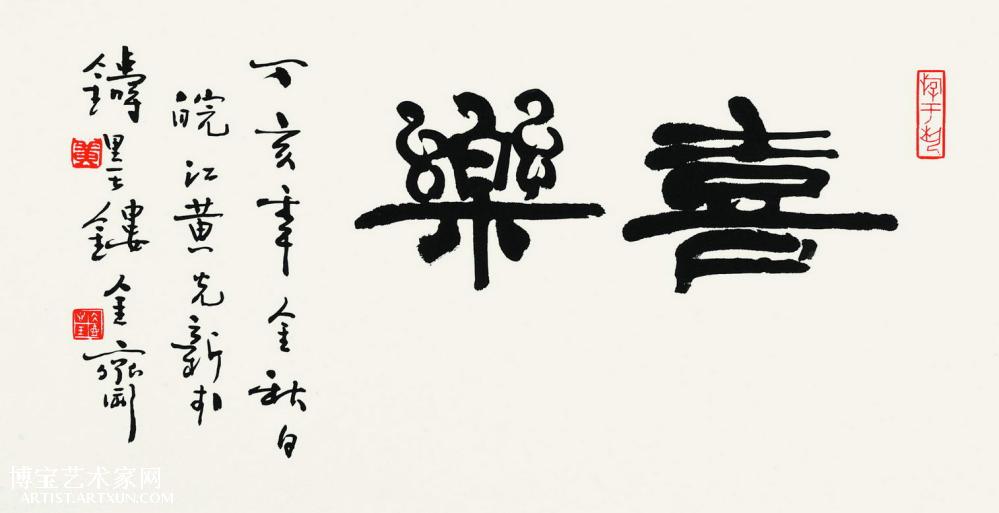 喜樂
丁亥年金秋日
皖江黄先新於
鑄墨鏤金齋
黄
博宝艺术家网
ARTIST.ARTXUN.COM